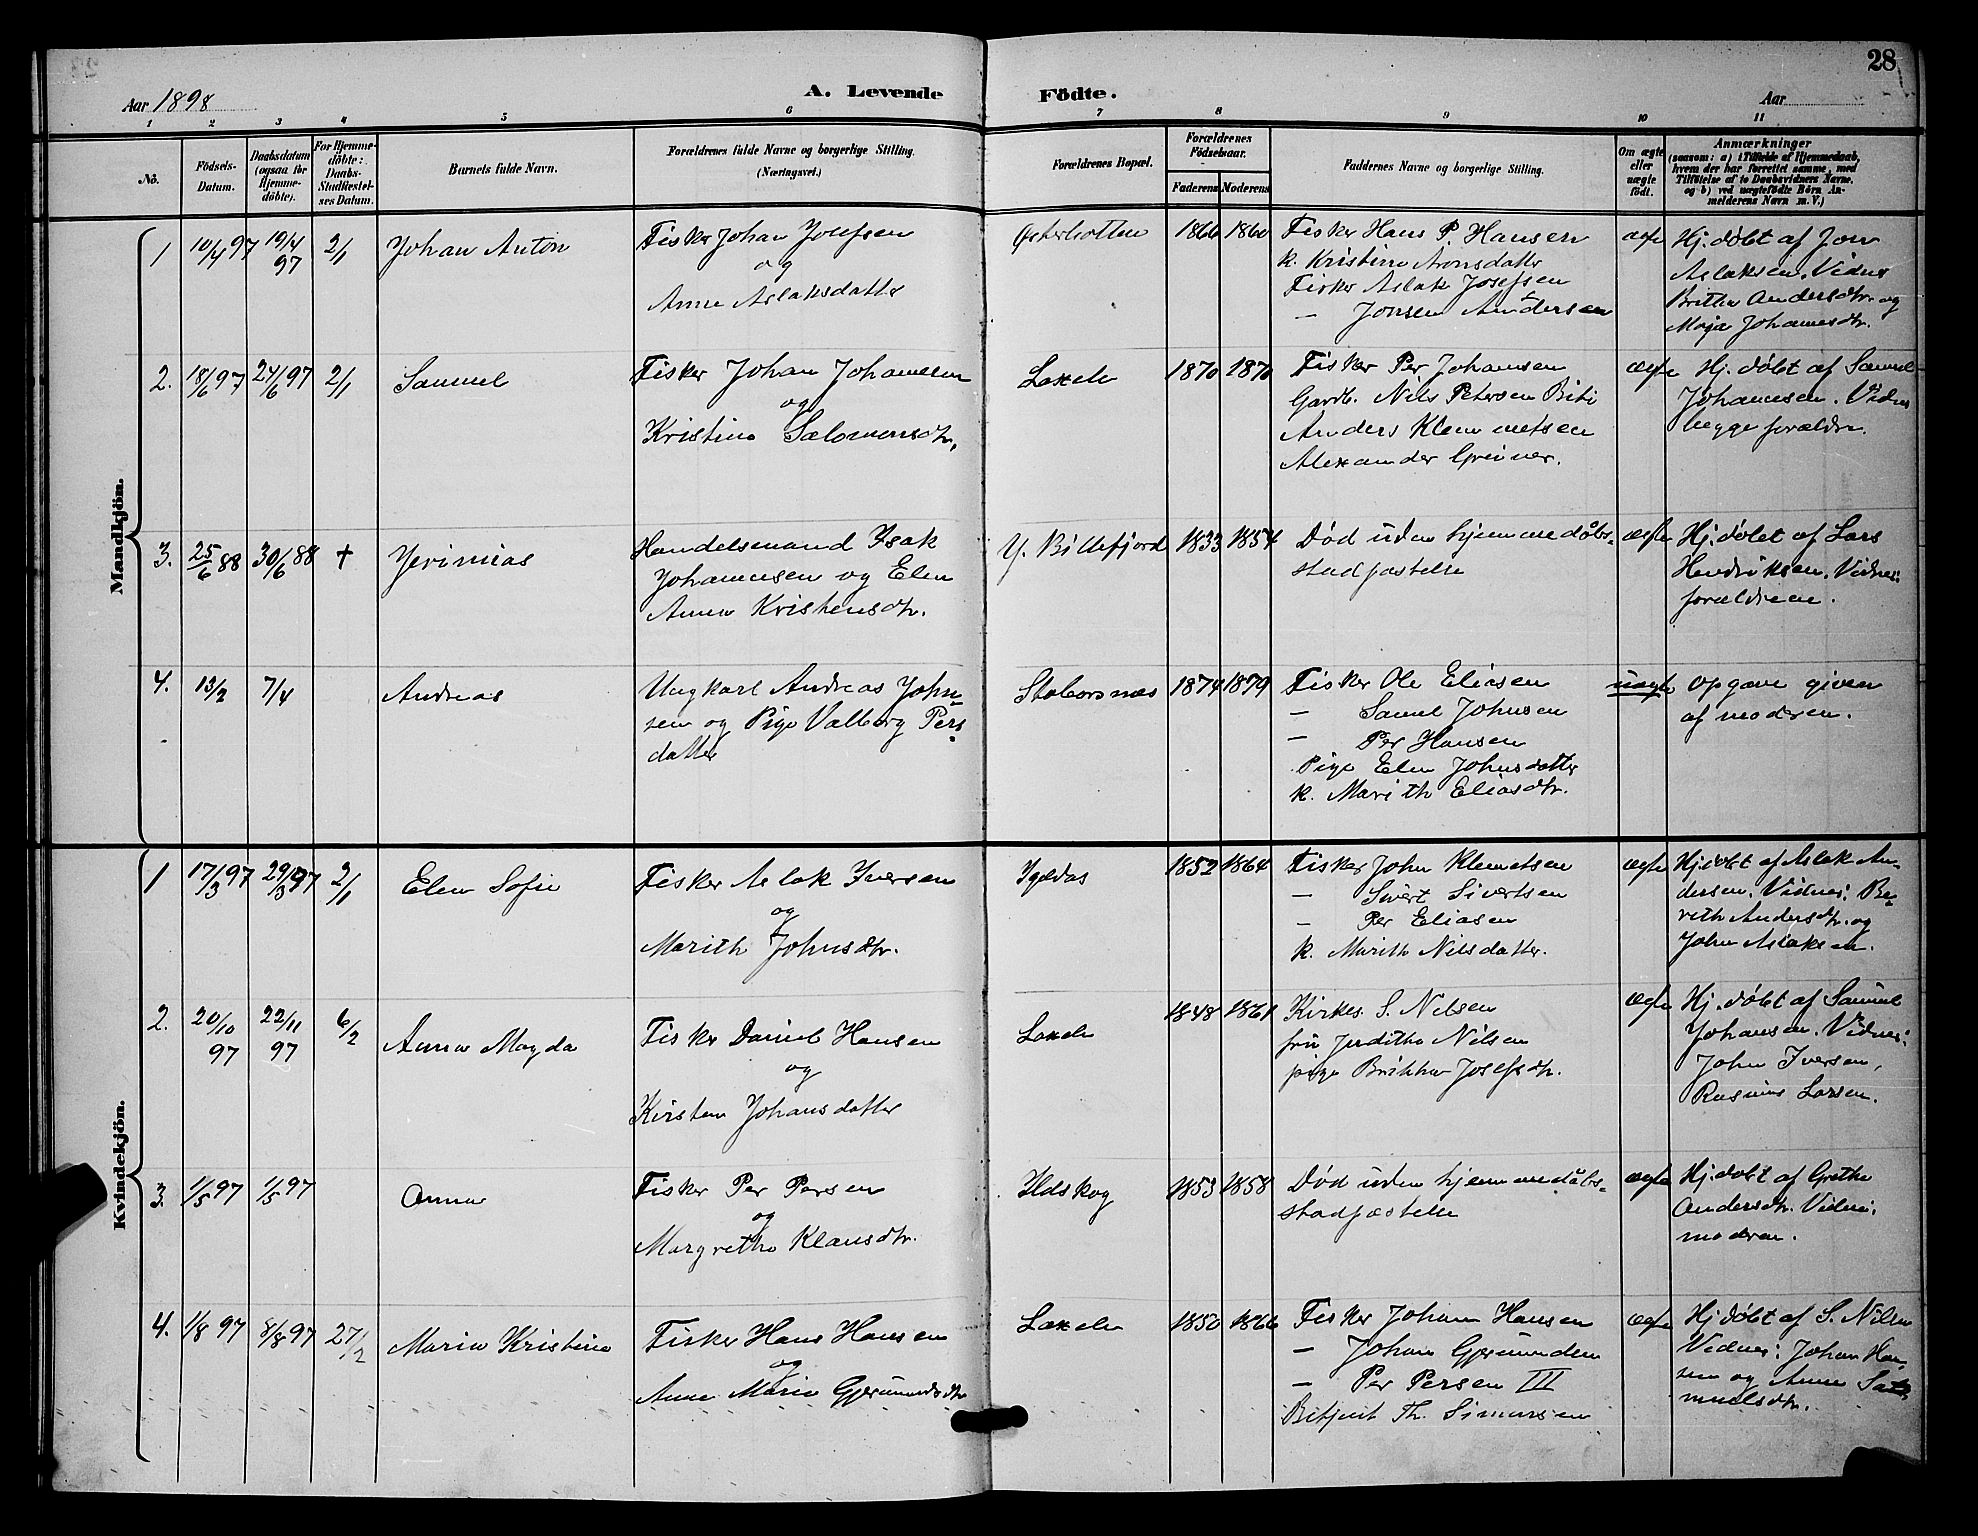 28
Aar 1898
A. Levende
Födte.
Aar
1 2 3 4 5 6 7 8 9 10 11
No.
Födsels-Datum.
Daabsdatum (ogsaa for Hjemme-döbte).
For Hjemme-döbte: Daabs-Stadfæstel-ses Datum.
Barnets fulde Navn.
Forældrenes fulde Navne og borgerlige Stilling.
(Næringsvei.)
Forældrenes Bopæl.
Forældrenes Födselsaar.
Faderens Moderens
Faddernes Navne og borgerlige Stilling.
Om ægte eller uægte födt.
Anmærkninger
(saasom: a) i Tilfælde af Hjemmedaab,
hvem der har forrettet samme, med
Tilföielse af to Daabsvidners Navne,
og b) ved uægtefödte Börn An-
melderens Navn m. V.)
Mandkjön.
1 10/4 97 19/4 97 2/1 Johan Anton
Fisker Johan Josefsen
og
Anne Aslaksdatter
Østerbotten 1866 1860
Fisker Hans P Hansen
k. Kristine Aronsdatter
Fisker Aslak Josefsen
— Jonsen Andersen
ægte
Hj. döbt af Jon
Aslaksen. Vidner
Britha Andersdtr. og
Maja Johannesdtr.
2. 18/6 97 24/6 97 2/1 Samuel
Fisker Johan Johannesen
og
Kristine Salomonsdtr.
Laxelv 1870 1870
Fisker Per Johansen
Gardb. Nils Petersen Biti
Anders Klemmetsen
Alexander Greiner.
ægte
Hj. døbt af Samuel
Johannesen. Vidner
begge forældre.
3. 25/6 88 30/6 88 † Jerimias
Handelsmand Isak
Johannesen og Elen
Anna Kristensdtr.
Y. Billefjord 1833 1854
Död uden hjemmedåbs-
stadfæstelse
ægte
Hj. døbt af Lars
Hendriksen. Vidner:
forældrene.
4. 13/2 7/4 Andreas
Ungkarl Andreas John-
sen og Pige Valborg Pers-
datter
Stabursnæs 1874 1879
Fisker Ole Eliasen
— Samuel Johnsen
— Per Hansen
Pige Elen Johnsdatter
k. Marith Eliasdtr.
uægte
Opgave given
af moderen.
Kvindekjön.
1 17/3 97 29/3 97 2/1 Elen Sofie
Fisker Aslak Iversen
og
Marith Johnsdtr.
Igeldas 1852 1864
Fisker John Klemetsen
— Sivert Sivertsen
— Per Eliasen
k. Marith Nilsdatter.
ægte
Hj. døbt af Aslak An-
dersen. Vidner: Be-
rith Andersdtr. og
John Aslaksen.
2. 20/10 97 22/11 97 6/2 Anna Magda
Fisker Daniel Hansen
og
Kirsten Johansdatter
Laxelv 1848 1861
Kirkes. S. Nilsen
fru Juditha Nilsen
pige Brikka Josefsdtr.
ægte
Hj. døbt af Samuel
Johansen. Vidner:
John Iversen,
Rasmus Larsen.
3. 1/5 97 1/5 97 Anna
Fisker Per Persen
og
Margrethe Klausdtr.
Ildskog 1853 1858
Död uden hjemmedåbs-
stadfæstelse
ægte
Hj. døbt af Grethe
Andersdtr. Vidne:
modren.
4. 1/8 97 8/8 97 27/2 Maria Kristine
Fisker Hans Hansen
og
Anne Marie Gjermundsdtr
Laxelv 1850 1866
Fisker Johan Hansen
— Johan Gjermundsen
— Per Persen III
Th. Simonsen
ægte
Hj. døbt af S. Nilsen
Vidner: Johan Han-
sen og Anne Sa-
muelsdtr.